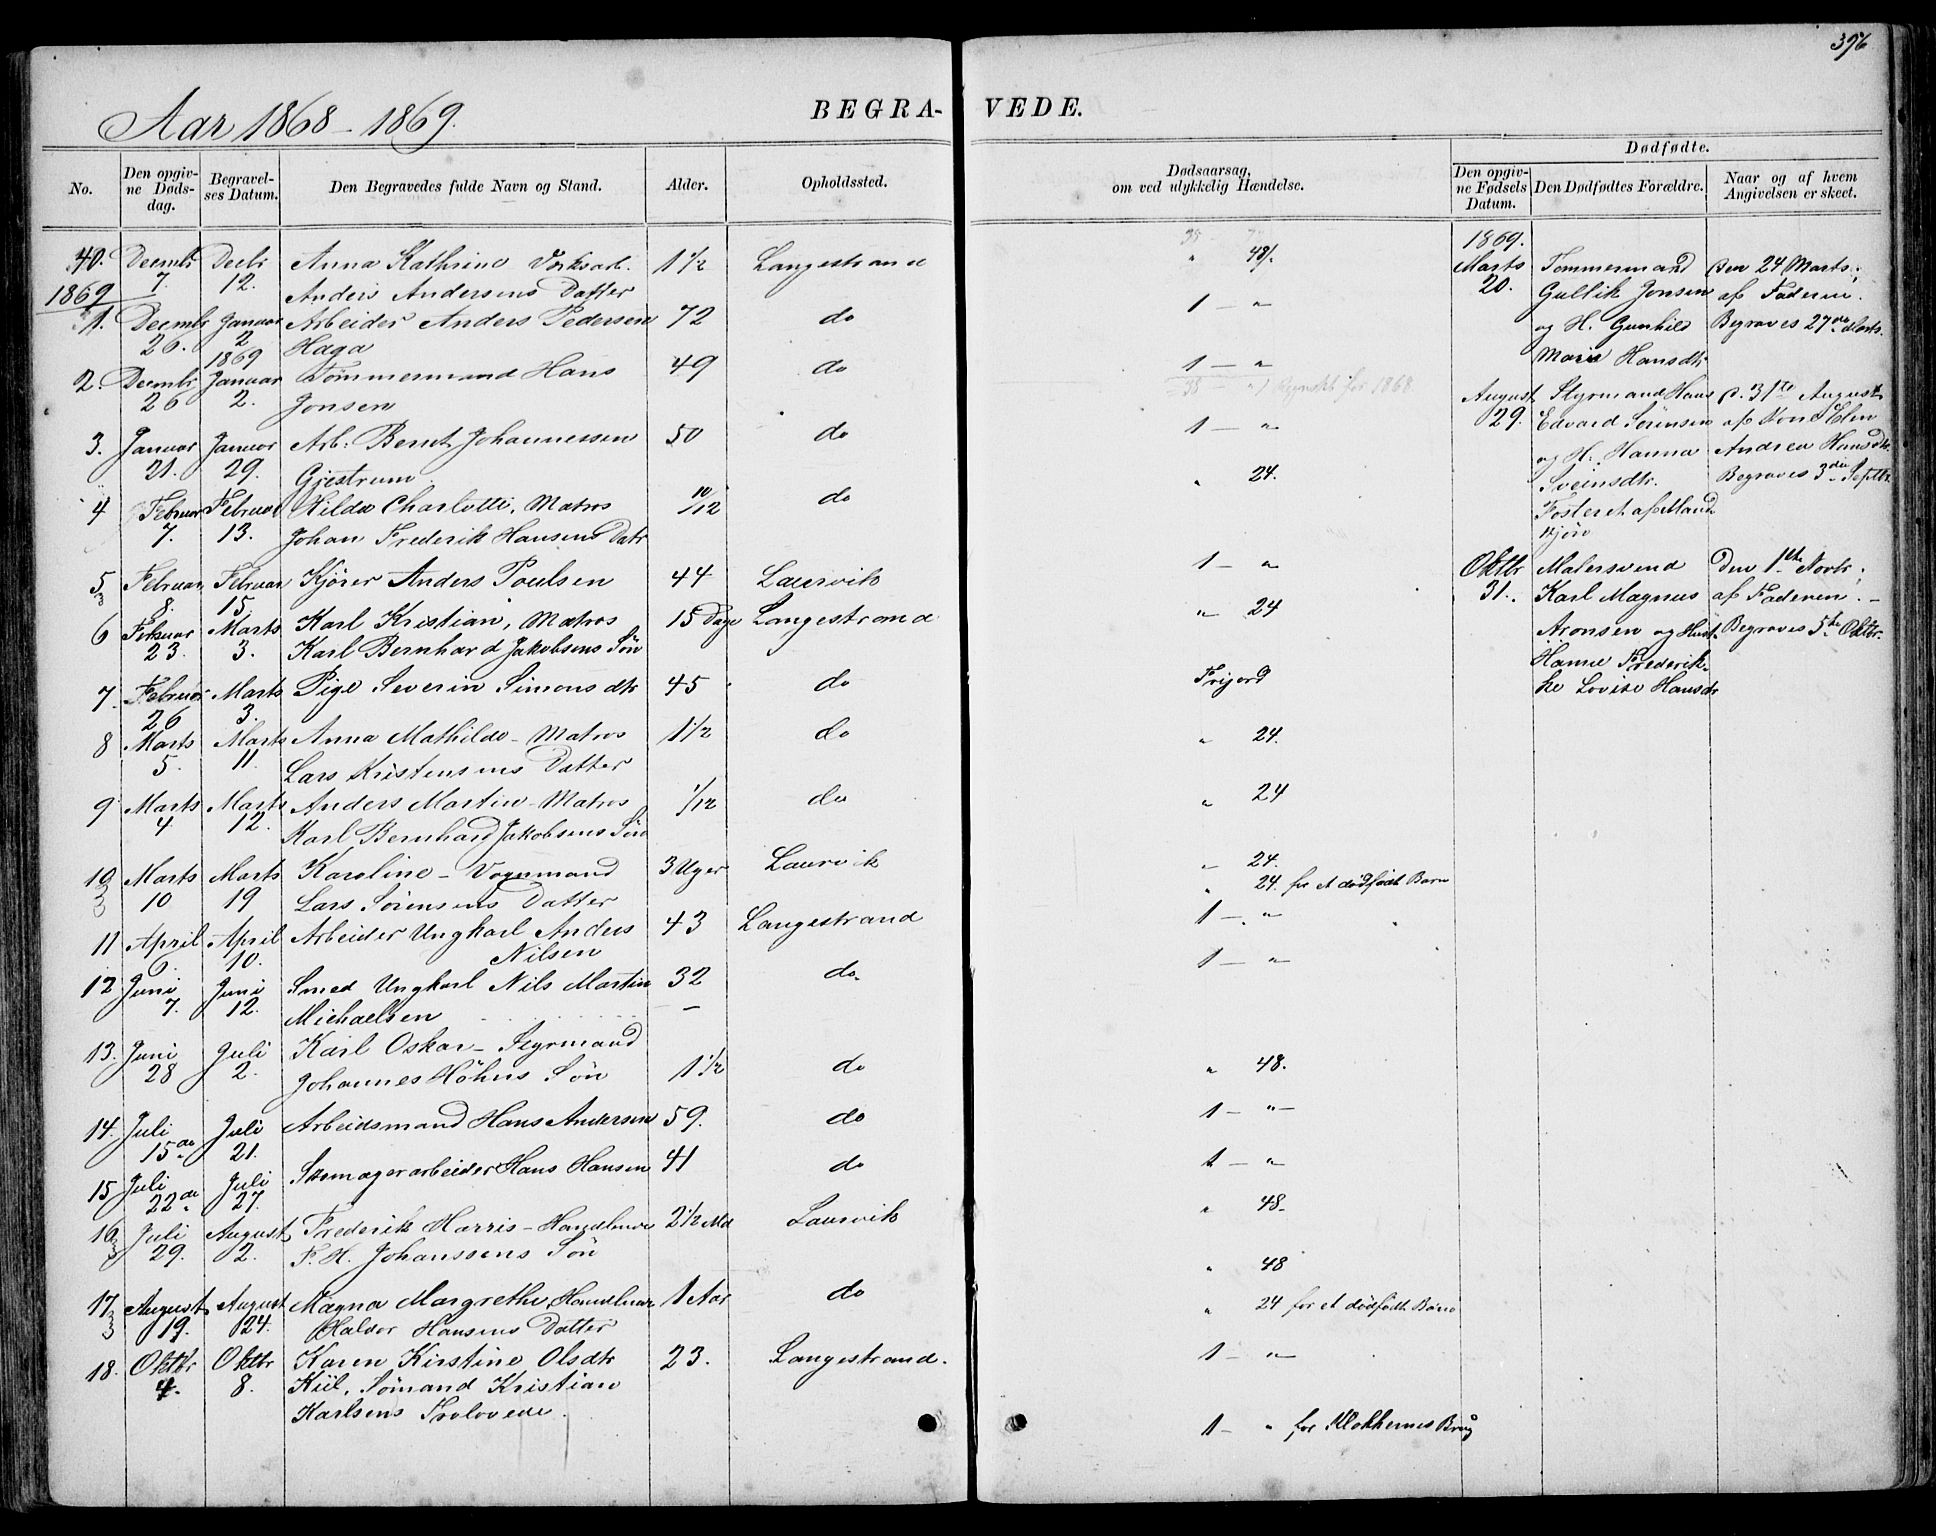 396
Aar 1868-1869.
BEGRA-VEDE.
No.
Den opgiv-
ne Døds-
dag.
Begravel-
ses Datum.
Den Begravedes fulde Navn og Stand.
Alder.
Opholdssted.
Dødsaarsag,
om ved ulykkelig Hændelse.
Dødfødte.
Den opgiv-
ne Fødsels
Datum.
Den Dødfødtes Forældre.
Naar og af hvem
Angivelsen er skeet.
40. Decmbr Decbr Anna Kathrine 1 1/2 Langestrand " 48/.
7. 12. Anders Andersens Datter
1869
1. Decmbr Januar Arbeider Anders Pedersen 72 do 1 — "
26. 2 Haga
1869
2. Decmbr Januar Tømmermand Hans 49 do 1 — "
26 2. Jonsen
Regnskb for 1868
3. Januar Januar Arb: Bernt Johannessen 50 do 1 — "
21. 29. Gjestrum
4 Februar Februar Hilda Charlotte, Matros 10/12 do " 24.
7. 13. Johan Frederik Hansens Datr
5 Februar Februar Kjører Anders Poulsen 44 Laurvik 1 — "
3 8. 15.
6 Februar Marts Karl Kristian, Matros 15 Dage Langestrand " 24
23. 3. Karl Bernhard Jakobsens Søn
7. Februar Marts Pige Severin Simonsdtr 45 do Frijord
26 3.
8 Marts Marts Anna Mathilde - Matros 1 1/2 do " 24.
5. 11. Lars Kristensens Datter
9 Marts Marts Anders Martin - Matros 1/12 do " 24
4. 12. Karl Bernhard Jakobsens Søn
10 Marts Marts Karoline - Vognmand 3 Uger Laurvik " 24.
3 10 19 Lars Sørensens Datter " 24. for et dødfødt Barn
11 April April Arbeider Ungkarl Anders 43 Langestrand 1 — "
6. 10. Nilsen
12 Juni Juni Smed Ungkarl Nils Martin 32 do 1 — "
7. 12. Michaelsen —
13. Juni Juli Karl Oskar - Styrmand
28 2. Johannes Höhns Søn 1 1/2 do " 48.
14. Juli Juli Arbeidsmand Hans Andersen 59. do 1 — " —
15de 21.
15 Juli Juli Skomagerarbeider Hans Hansen 41 do 1 — "
22de 27.
16 Juli August Frederik Harris - 2 1/2 Md Laurvik " 48-
3 29. 2. F. H. Johanssens Søn
17 August August Magna Margrethe, 1 Aar do " 48
3 19. 24. Haldor Hansens Datter " 24 for et dødfødt Barn
18. Oktbr Oktbr Karen Kirstine Olsdtr 23. Langestrand. 1 — "
4. 8. Kiil, Sømand Kristian
Karlsens Trolovede.
1 — " for Klokkernes Brug
1869.
Marts Tømmermand Den 24 Marts;
20. Gullik Jonsen af Faderen.
og H. Gunhild Begraves 27de Marts.
Maria Hansdtr
August Styrmand Hans p. 31te August
29. Edvard Sørensen af
og H. Hanna Andrea Hansdtr.
Sveinsdtr. Begraves 3die Septbr
Fosteret af Mand
kjøn
Oktbr Malersvend Den 1ste Novbr;
31. Karl Magnus af Faderen. —
Aronsen og Hust. Begraves 5te Oktbr.
Hanne Frederik-
ke Lovise Hansdtr